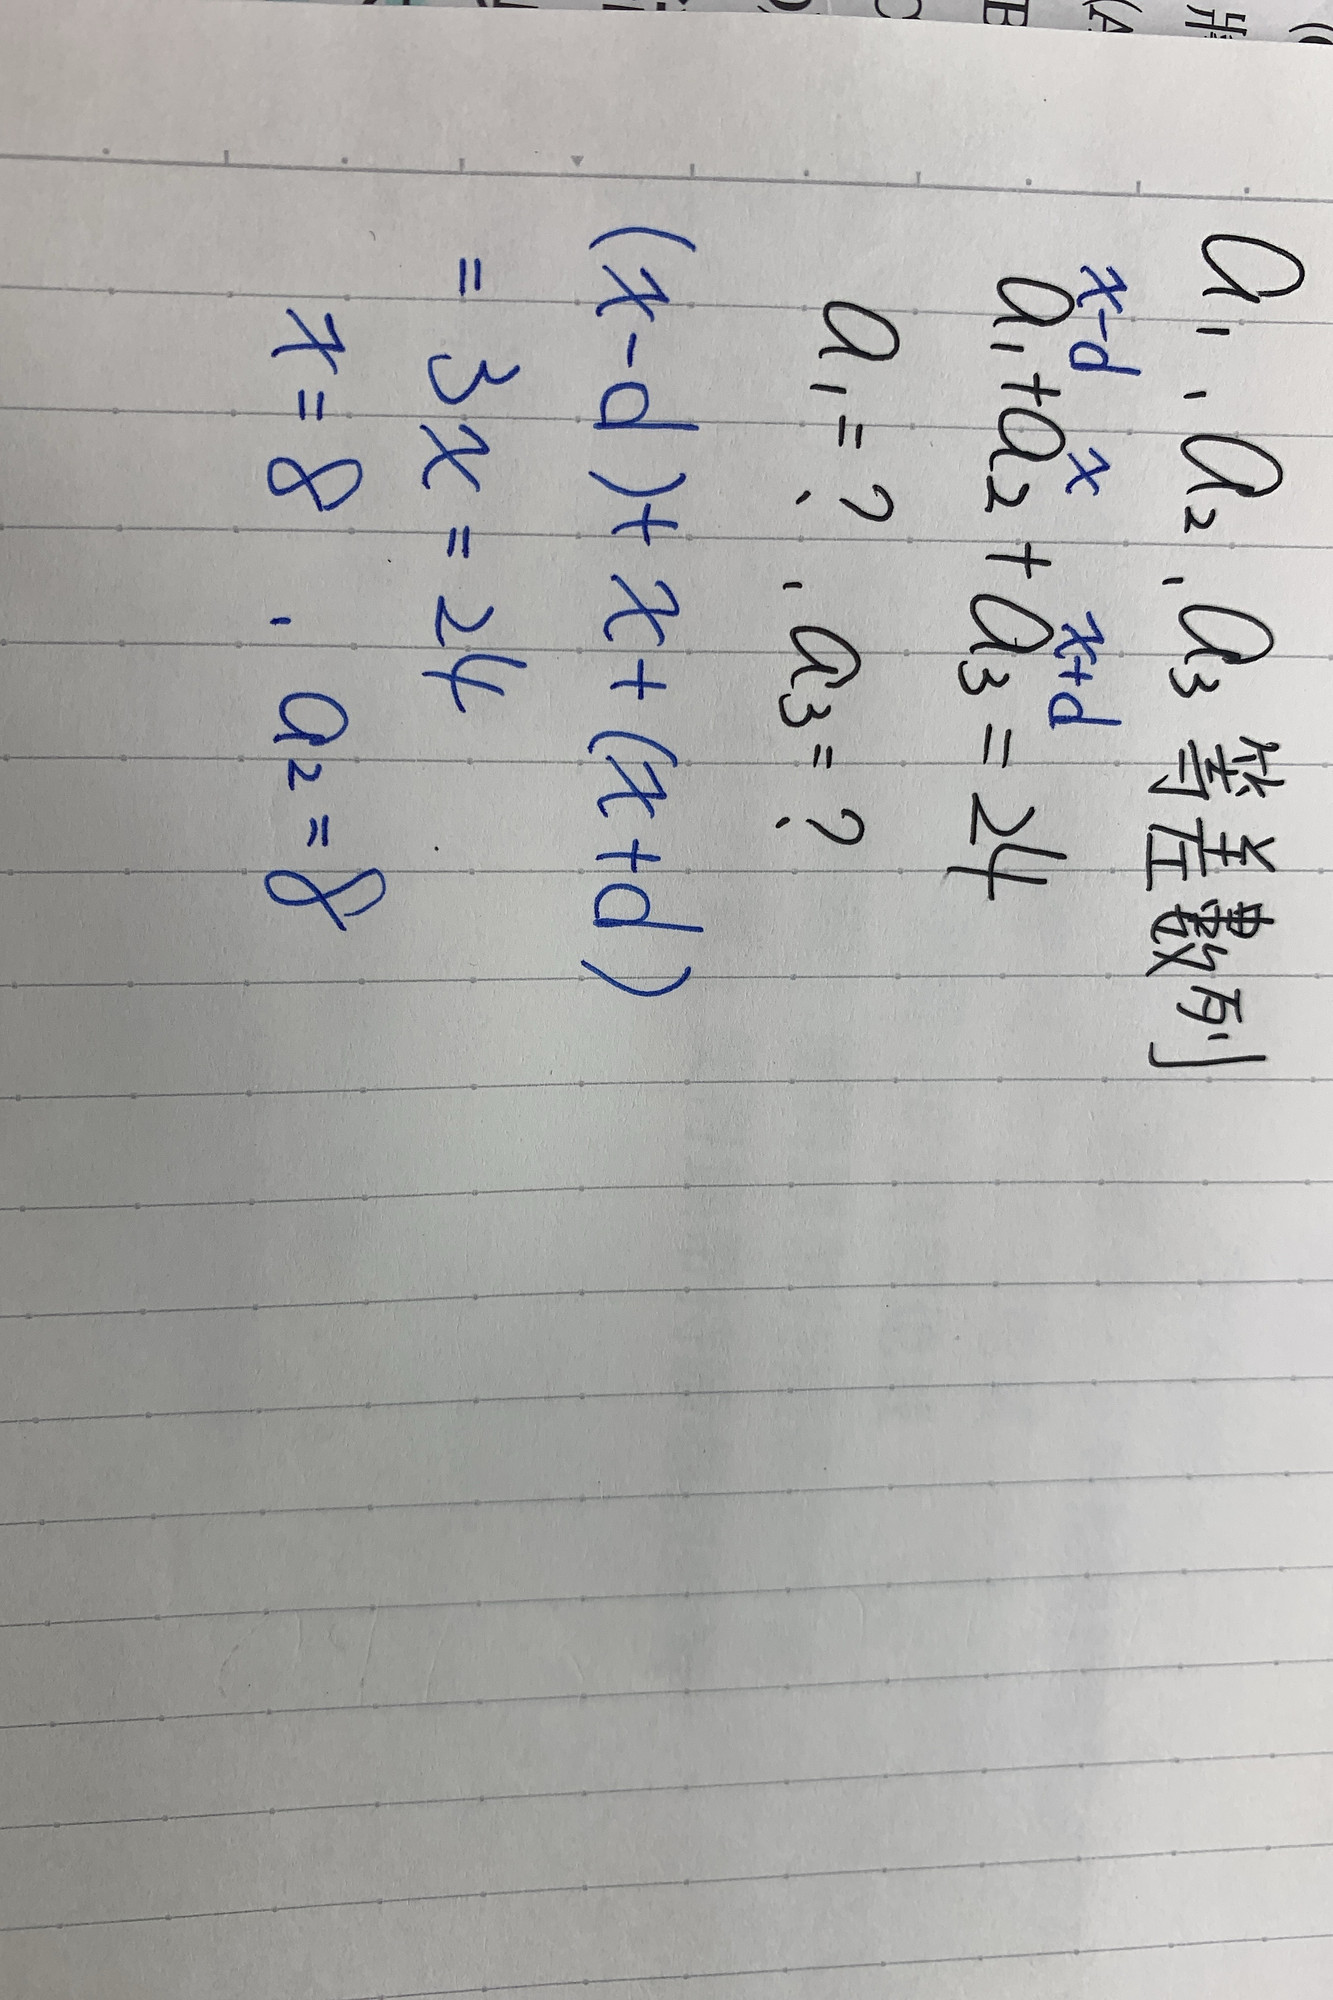 a₁、a₂、a₃ 等差數列
x-d x x+d
a₁+a₂+a₃=24
a₁=?、a₃=?
(x-d)+x+(x+d)
=3x=24
x=8、a₂=8